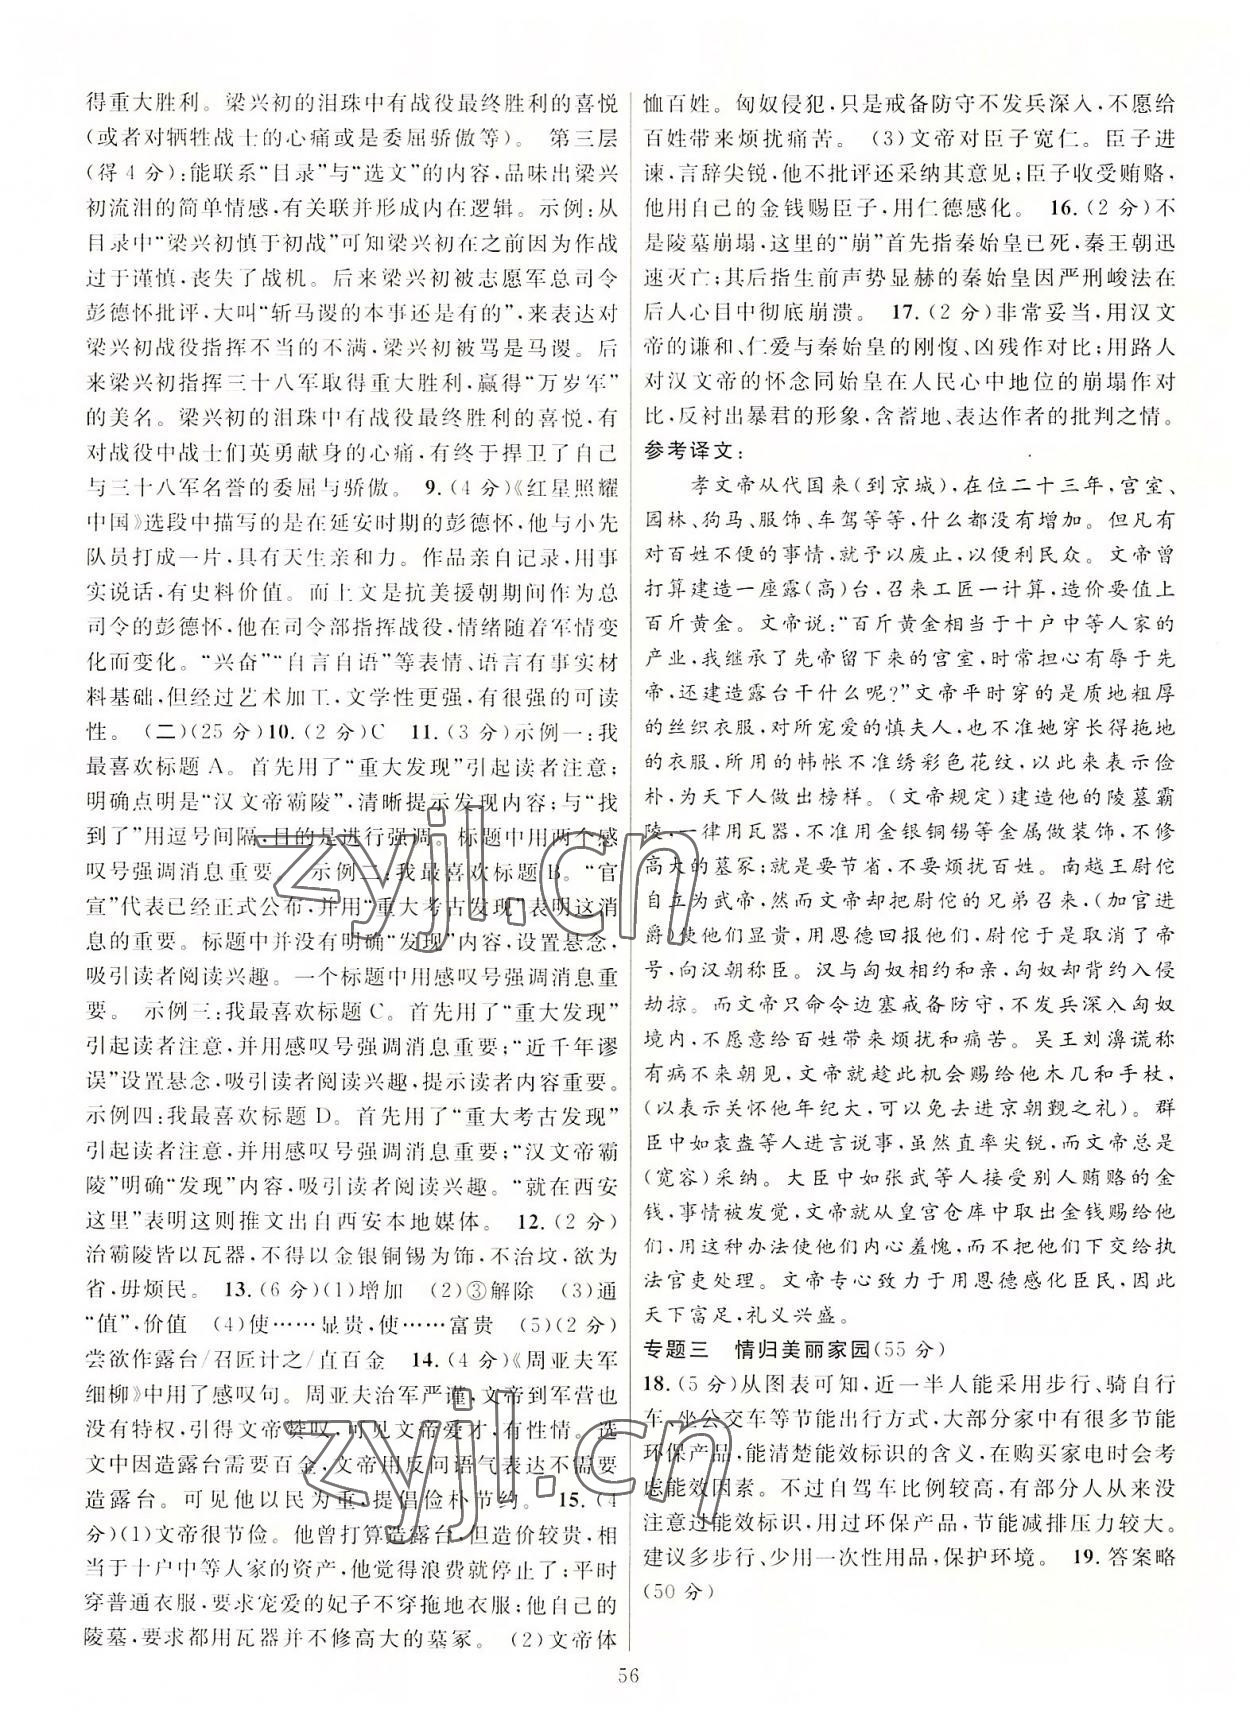 得重大胜利。梁兴初的泪珠中有战役最终胜利的喜悦
(或者对牺牲战士的心痛或是委屈骄傲等)。 第三层
(得4分):能联系“目录”与“选文”的内容,品味出梁兴
初流泪的简单情感,有关联并形成内在逻辑。示例:从
目录中“梁兴初慎于初战”可知梁兴初在之前因为作战
过于谨慎,丧失了战机。后来梁兴初被志愿军总司令
彭德怀批评,大叫“斩马谡的本事还是有的”,来表达对
梁兴初战役指挥不当的不满,梁兴初被骂是马谡。后
来梁兴初指挥三十八军取得重大胜利,赢得“万岁军”
的美名。梁兴初的泪珠中有战役最终胜利的喜悦,有
对战役中战士们英勇献身的心痛,有终于捍卫了自己
与三十八军名誉的委屈与骄傲。 9.(4分)《红星照耀
中国》选段中描写的是在延安时期的彭德怀,他与小先
队员打成一片,具有天生亲和力。作品亲自记录,用事
实说话,有史料价值。而上文是抗美援朝期间作为总
司令的彭德怀,他在司令部指挥战役,情绪随着军情变
化而变化。“兴奋”“自言自语”等表情、语言有事实材
料基础,但经过艺术加工,文学性更强,有很强的可读
性。 (二)(25分)10.(2分)C 11.(3分)示例一:我
最喜欢标题A。首先用了“重大发现”引起读者注意;
明确点明是“汉文帝霸陵”,清晰提示发现内容;与“找
到了”用逗号间隔,目的是进行强调。标题中用两个感
叹号强调消息重要。 示例二:我最喜欢标题B。“官
宣”代表已经正式公布,并用“重大考古发现”表明这消
息的重要。标题中并没有明确“发现”内容,设置悬念,
吸引读者阅读兴趣。一个标题中用感叹号强调消息重
要。 示例三:我最喜欢标题C。首先用了“重大发现”
引起读者注意,并用感叹号强调消息重要;“近千年谬
误”设置悬念,吸引读者阅读兴趣,提示读者内容重要。
示例四:我最喜欢标题D。首先用了“重大考古发现”
引起读者注意,并用感叹号强调消息重要;“汉文帝霸
陵”明确“发现”内容,吸引读者阅读兴趣。“就在西安
这里”表明这则推文出自西安本地媒体。 12.(2分)
治霸陵皆以瓦器,不得以金银铜锡为饰,不治坟,欲为
省,毋烦民。 13.(6分)(1)增加 (2)③解除 (3)通
“值”,价值 (4)使……显贵,使……富贵 (5)(2分)
尝欲作露台/召匠计之/直百金 14.(4分)《周亚夫军
细柳》中用了感叹句。周亚夫治军严谨,文帝到军营也
没有特权,引得文帝赞叹,可见文帝爱才,有性情。选
文中因造露台需要百金,文帝用反问语气表达不需要
造露台。可见他以民为重,提倡俭朴节约。 15.(4
分)(1)文帝很节俭。他曾打算造露台,但造价较贵,
相当于十户中等人家的资产,他觉得浪费就停止了;平时
穿普通衣服,要求宠爱的妃子不穿拖地衣服;他自己的
陵墓,要求都用瓦器并不修高大的墓冢。 (2)文帝体
恤百姓。匈奴侵犯,只是戒备防守不发兵深入,不愿给
百姓带来烦扰痛苦。 (3)文帝对臣子宽仁。臣子进
谏,言辞尖锐,他不批评还采纳其意见;臣子收受贿赂,
他用自己的金钱赐臣子,用仁德感化。 16.(2分)不
是陵墓崩塌,这里的“崩”首先指秦始皇已死,秦王朝迅
速灭亡;其后指生前声势显赫的秦始皇因严刑峻法在
后人心目中彻底崩溃。 17.(2分)非常妥当,用汉文
帝的谦和、仁爱与秦始皇的刚愎、凶残作对比;用路人
对汉文帝的怀念同始皇在人民心中地位的崩塌作对
比,反衬出暴君的形象,含蓄地、表达作者的批判之情。
参考译文:
孝文帝从代国来(到京城),在位二十三年,宫室、
园林、狗马、服饰、车驾等等,什么都没有增加。但凡有
对百姓不便的事情,就予以废止,以便利民众。文帝曾
打算建造一座露(高)台,召来工匠一计算,造价要值上
百斤黄金。文帝说:“百斤黄金相当于十户中等人家的
产业,我继承了先帝留下来的宫室,时常担心有辱于先
帝,还建造露台干什么呢?”文帝平时穿的是质地粗厚
的丝织衣服,对所宠爱的慎夫人,也不准她穿长得拖地
的衣服,所用的帏帐不准绣彩色花纹,以此来表示俭
朴,为天下人做出榜样。(文帝规定)建造他的陵墓霸
陵,一律用瓦器,不准用金银铜锡等金属做装饰,不修
高大的墓冢;就是要节省,不要烦扰百姓。南越王尉佗
自立为武帝,然而文帝却把尉佗的兄弟召来,(加官进
爵)使他们显贵,用恩德回报他们,尉佗于是取消了帝
号,向汉朝称臣。汉与匈奴相约和亲,匈奴却背约入侵
劫掠。而文帝只命令边塞戒备防守,不发兵深入匈奴
境内,不愿意给百姓带来烦扰和痛苦。吴王刘濞谎称
有病不来朝见,文帝就趁此机会赐给他木几和手杖,
(以表示关怀他年纪大,可以免去进京朝觐之礼)。群
臣中如袁盎等人进言说事,虽然直率尖锐,而文帝总是
(宽容)采纳。大臣中如张武等人接受别人贿赂的金
钱,事情被发觉,文帝就从皇宫仓库中取出金钱赐给他
们,用这种办法使他们内心羞愧,而不将他们下交给执
法官吏处理。文帝专心致力于用恩德感化臣民,因此
天下富足,礼义兴盛。
专题三 情归美丽家园(55分)
18.(5分)从图表可知,近一半人能采用步行、骑自行
车、坐公交车等节能出行方式,大部分家中有很多节能
环保产品,能清楚能效标识的含义,在购买家电时会考
虑能效因素。不过自驾车比例较高,有部分人从来没
注意过能效标识,用过环保产品,节能减排压力较大。
建议多步行、少用一次性用品,保护环境。 19.答案略
(50分)
56
zyjl.cn
zyjl.cn